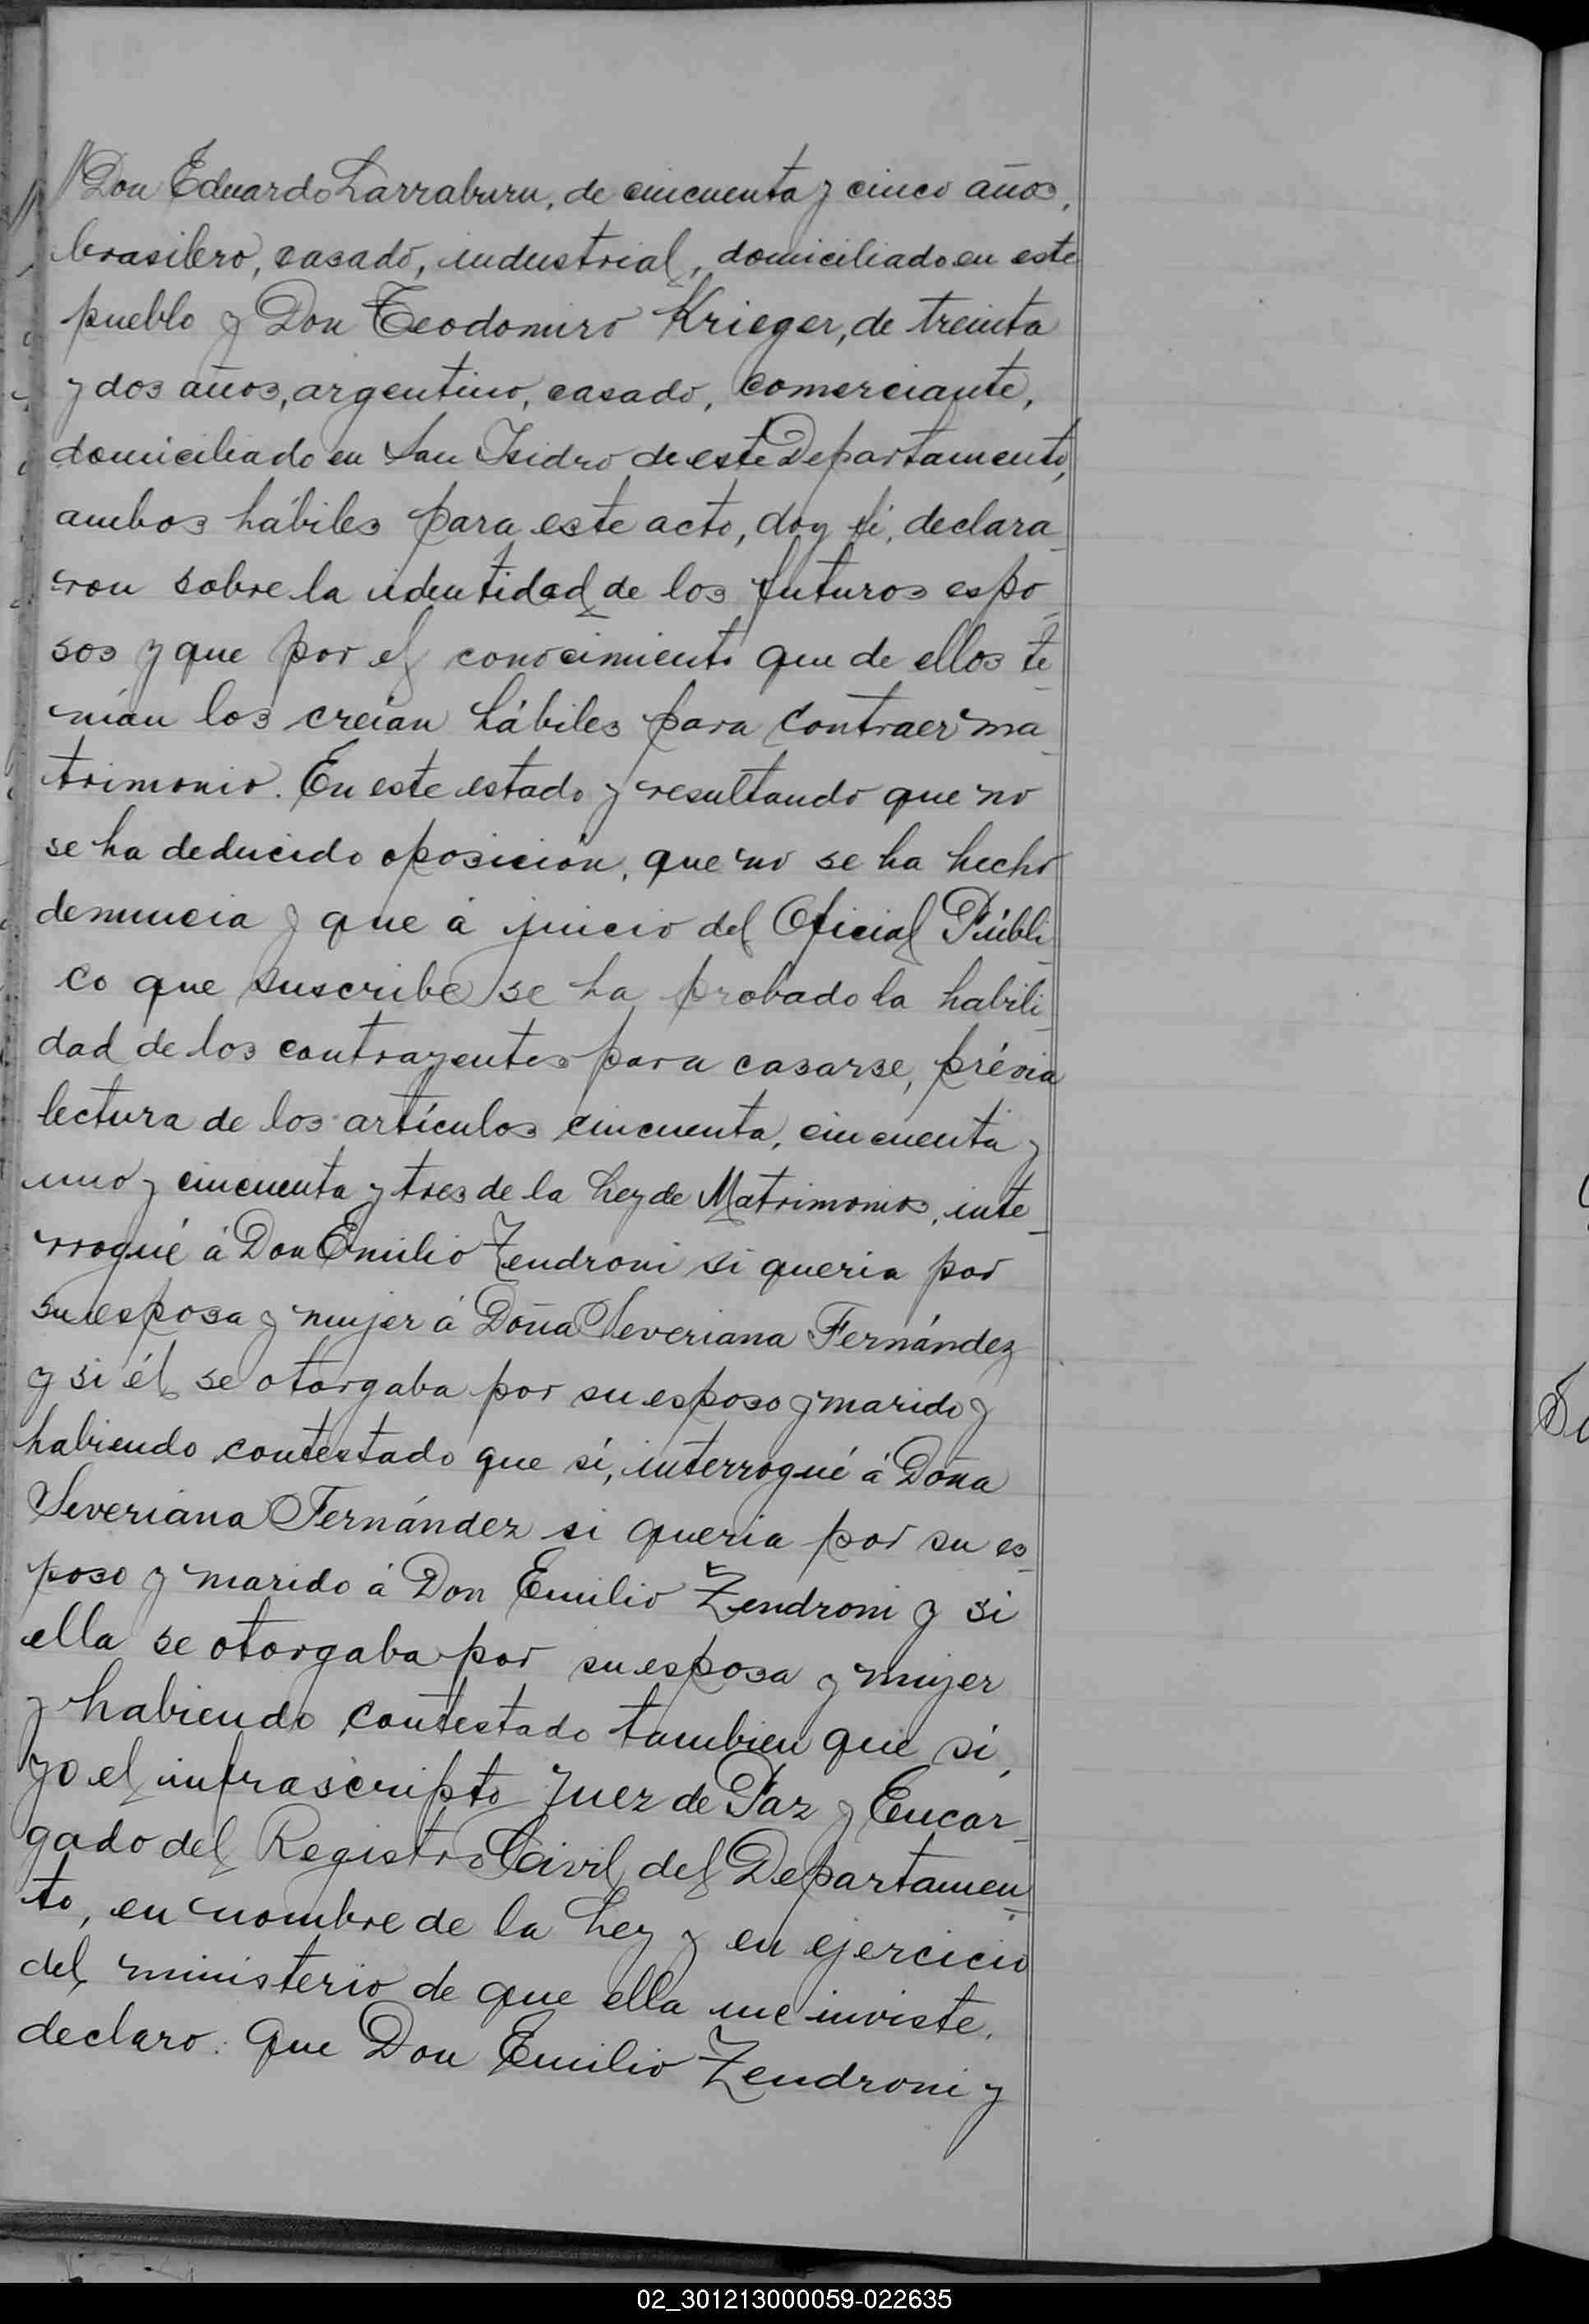 //Don Eduardo Larraburu, de cincuenta y cinco años,
brasilero, casado, industrial, domiciliado en este
pueblo y Don Teodomiro Krieger, de treinta
y dos años, argentino, casado, comerciante,
domiciliado en San Isidro de este Departamento,
ambos hábiles para este acto, doy fé, declara-
ron sobre la identidad de los futuros espo-
sos y que por el conocimiento que de ellos te-
nían los creían hábiles para contraer ma-
trimonio. En este estado y resultando que no
se ha deducido oposición, que no se ha hecho
denuncia y que á juicio del Oficial Públi-
co que suscribe se ha probado la habili-
dad de los contrayentes para casarse, prévia
lectura de los artículos cincuenta, cincuenta y
uno y cincuenta y tres de la Ley de Matrimonios, inte-
rrogué á Don Emilio Zendroni si queria por
su esposa y mujer á Doña Severiana Fernández
y si él se otorgaba por su esposo y marido y
habiendo contestado que sí, interrogué á Doña
Severiana Fernández si queria por su es-
poso y marido á Don Emilio Zendroni y si
ella se otorgaba por su esposa y mujer
y habiendo contestado tambien que sí,
yo el infrascripto Juez de Paz y Encar-
gado del Registro Civil del Departamen-
to, en nombre de la Ley y en ejercicio
del ministerio de que ella me inviste,
declaro: Que Don Emilio Zendroni y
02_301213000059-022635